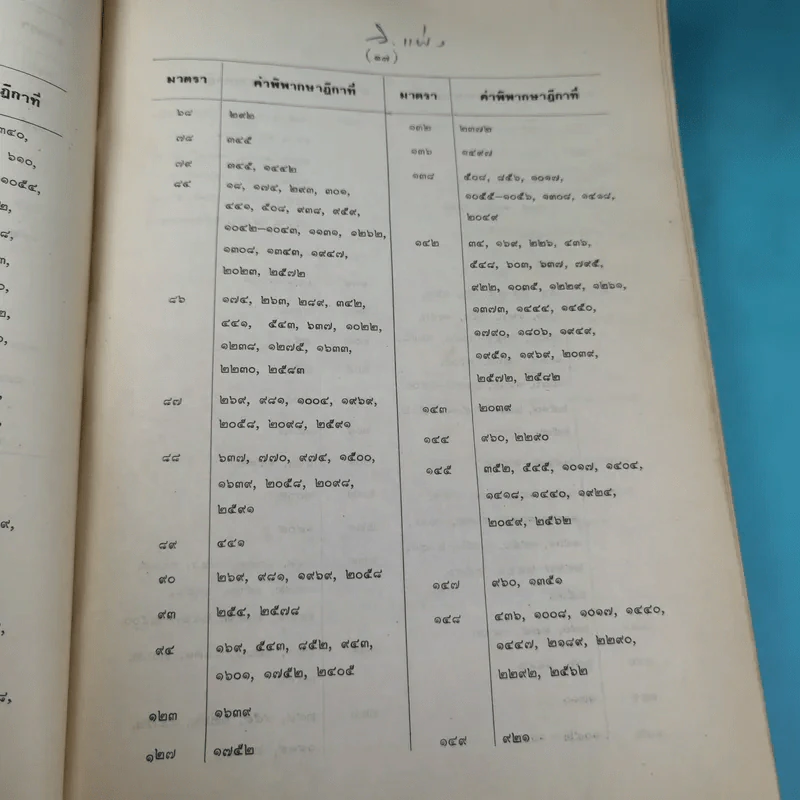 วิ.แพ่ง
(๑๗)
มาตรา คำพิพากษาฎีกาที่
๖๘ ๒๙๒
๗๔ ๓๔๕
๗๙ ๓๔๕, ๑๔๔๒
๘๕ ๑๘, ๑๗๔, ๒๙๓, ๓๐๑,
๔๔๑, ๕๐๘, ๙๓๘, ๙๕๙,
๑๐๔๒-๑๐๔๓, ๑๑๓๑, ๑๒๖๒,
๑๓๐๘, ๑๓๔๓, ๑๙๔๗,
๒๐๒๓, ๒๕๗๒
๘๖ ๑๗๔, ๒๖๓, ๒๘๙, ๓๔๒,
๔๔๑, ๕๔๓, ๖๓๗, ๑๐๒๒,
๑๒๓๘, ๑๒๗๕, ๑๖๓๓,
๒๒๓๐, ๒๕๘๓
๘๗ ๒๖๙, ๙๘๑, ๑๐๐๔, ๑๙๖๙,
๒๐๕๘, ๒๐๙๘, ๒๕๙๑
๘๘ ๖๓๗, ๗๗๐, ๙๗๔, ๑๕๐๐,
๑๖๓๙, ๒๐๕๘, ๒๐๙๘,
๒๕๙๑
๘๙ ๔๔๑
๙๐ ๒๖๙, ๙๘๑, ๑๙๖๙, ๒๐๕๘
๙๓ ๒๕๔, ๒๕๗๘
๙๔ ๑๖๙, ๕๔๓, ๘๕๒, ๙๔๓,
๑๖๐๑, ๑๗๕๒, ๒๔๐๕
๑๒๓ ๑๖๓๙
๑๒๗ ๑๗๕๒
มาตรา คำพิพากษาฎีกาที่
๑๓๒ ๒๓๗๒
๑๓๖ ๑๔๙๗
๑๓๘ ๕๐๘, ๘๕๖, ๑๐๑๗,
๑๐๕๕-๑๐๕๖, ๑๓๐๘, ๑๔๑๘,
๒๐๔๙
๑๔๒ ๓๔, ๑๖๙, ๒๒๖, ๔๓๖,
๕๔๘, ๖๐๓, ๖๓๗, ๗๙๕,
๙๒๒, ๑๐๓๕, ๑๒๒๙, ๑๒๖๑,
๑๓๗๓, ๑๔๔๔, ๑๔๕๐,
๑๗๙๐, ๑๘๐๖, ๑๙๔๙,
๑๙๕๑, ๑๙๖๙, ๒๐๓๙,
๒๕๗๒, ๒๕๘๒
๑๔๓ ๒๐๓๙
๑๔๔ ๙๖๐, ๒๒๙๐
๑๔๕ ๓๕๒, ๕๔๕, ๑๐๑๗, ๑๔๐๔,
๑๔๑๘, ๑๔๔๐, ๑๙๒๔,
๒๐๔๙, ๒๕๖๒
๑๔๗ ๙๖๐, ๑๓๕๑
๑๔๘ ๔๓๖, ๑๐๐๘, ๑๐๑๗, ๑๔๔๐,
๑๔๔๗, ๒๑๘๙, ๒๒๙๐,
๒๒๙๒, ๒๕๖๒
๑๔๙ ๙๒๑